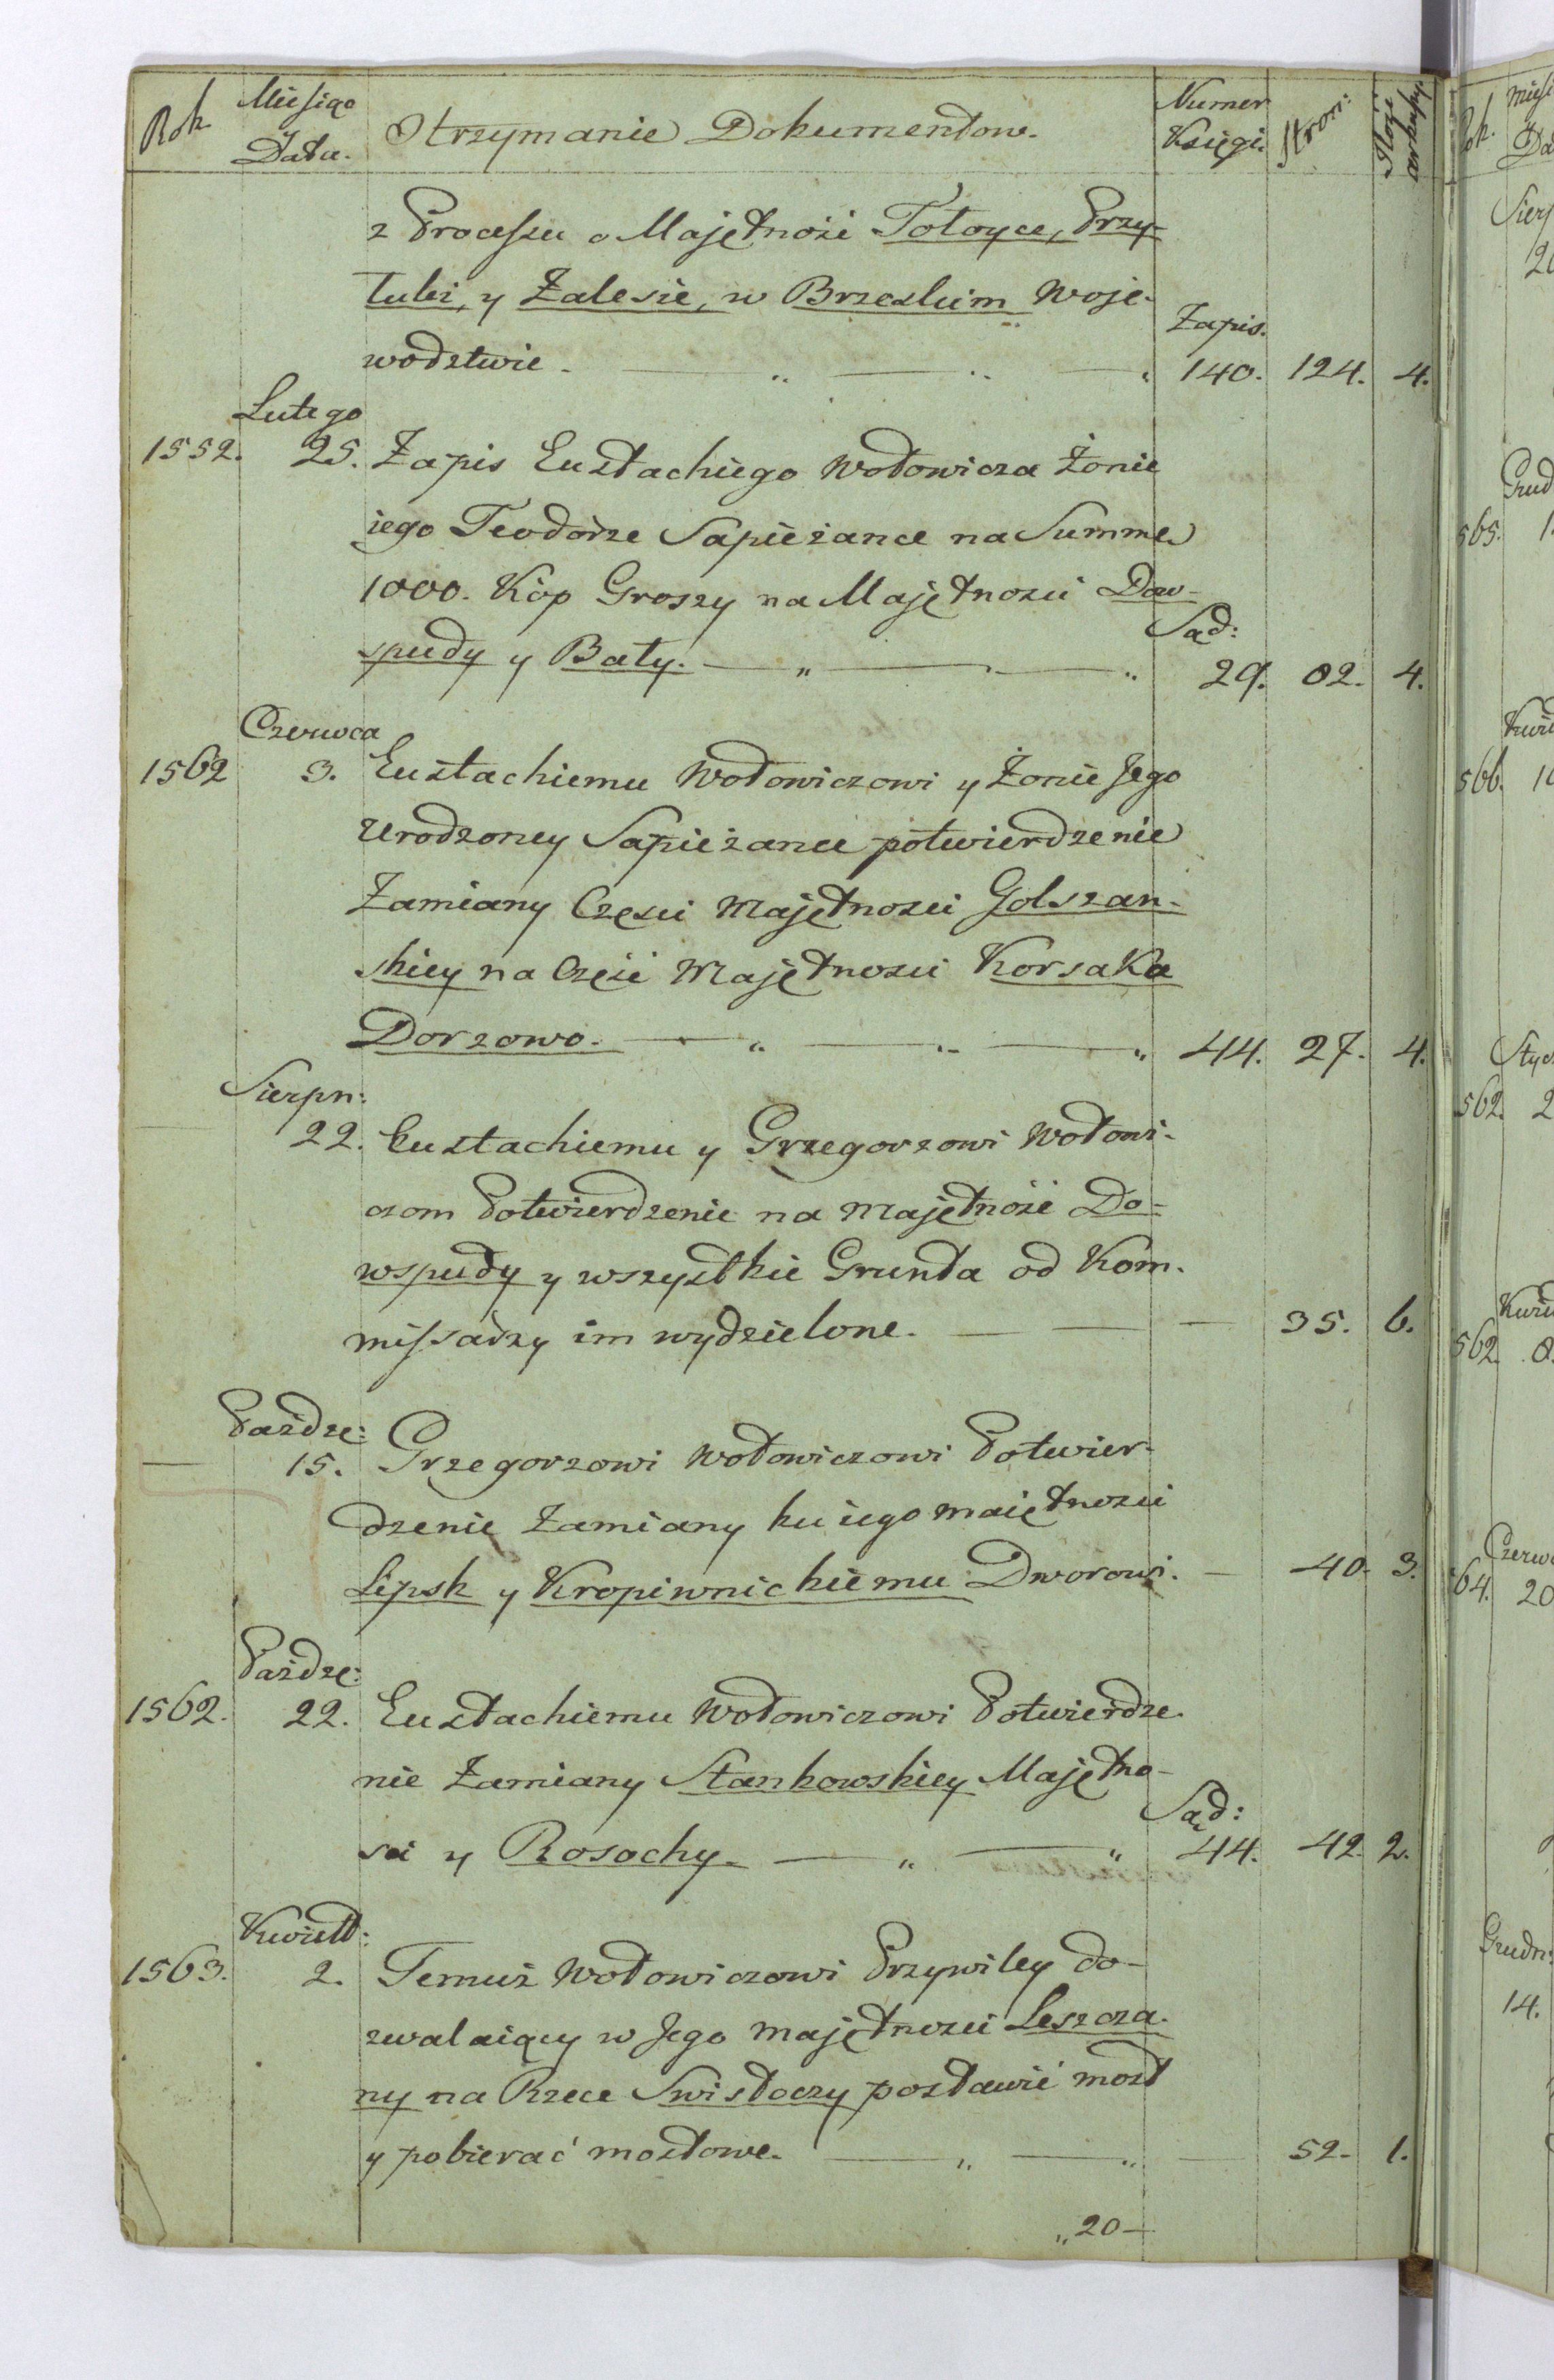 Rok Miesiąc Data. Otrzymanie Dokumentow. Numer Księgi. Stron: Ilość
z Processu o Majętność Tołoyce, Przy-
łuki, y Zalesie, w Brzeskim Woje-
wodztwie. Zapis. 140. 124. 4.
Lutego
1552. 25. Zapis Eustachiego Wołowicza Żonie
iego Teodorze Sapieżance na Summę
1000. Kóp Groszy na Majętności Dow-
spudy y Bały. Sąd: 29. 82. 4.
Czerwca
1562 3. Eustachiemu Wołowiczowi y Żonie Jego
Urodzoney Sapieżance potwierdzenie
Zamiany Częsci Majętnosci Golszan-
skiey na Część Majętnosci Korsaka
Dorzowo. 44. 27. 4.
Sierpn:
22. Eustachiemu y Grzegorzowi Wołowi-
czom Potwierdzenie na Majętność Do-
wspudy y wszystkie Grunta od Kom-
missarzy im wydzielone. — 35. 6.
Paźdze:
— 15. Grzegorzowi Wołowiczowi Potwier-
dzenie Zamiany ku iego maiętnosci
Lipsk y Kropiwnickiemu Dworowi. — 40. 3.
Paźdze:
1562. 22. Eustachiemu Wołowiczowi Potwierdze-
nie Zamiany Stankowskiey Majętno-
sci y Rosochy. Sąd: 44. 42. 2.
Kwiet:
1563. 2. Temuż Wołowiczowi Przywiley do-
zwalaiący w Jego majętnosci Leszcza-
ny na Rzece Swisłoczy postawić most
y pobierać mostowe. — 52. 1.
„20—